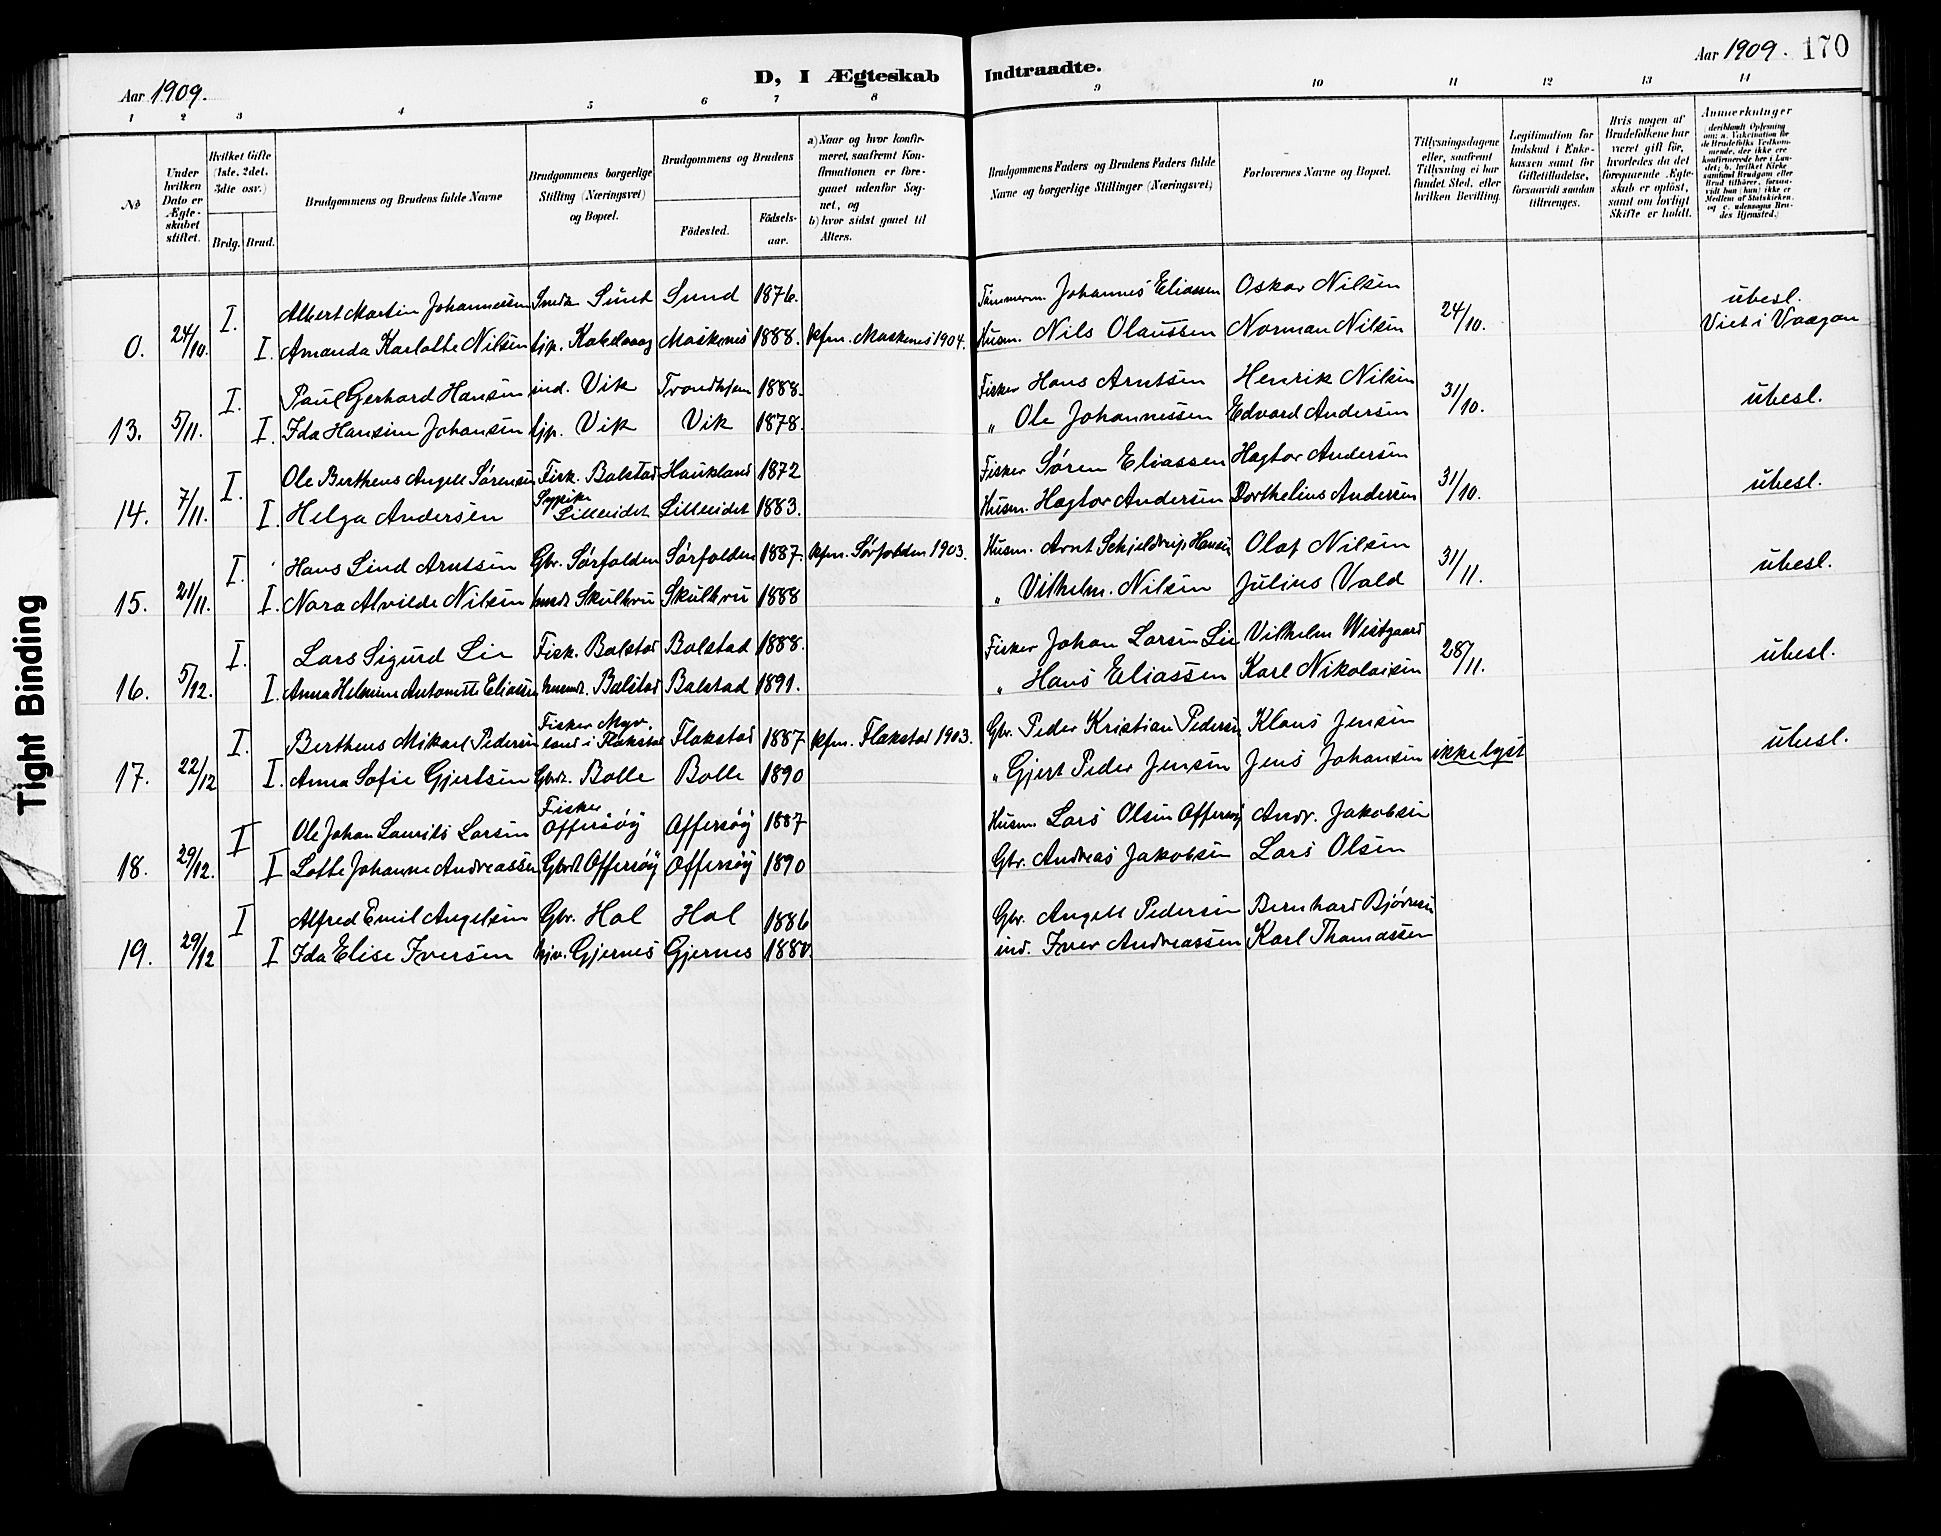 Aar 1909.
D, I Ægteskab Indtraadte.
Aar 1909. 170
1 2 3 4 5 6 7 8 9 10 11 12 13 14
No
Under hvilken Dato er Ægteskabet stiftet.
Hvilket Gifte (1ste, 2det, 3die osv.)
Brdg. Brud.
Brudgommens og Brudens fulde Navne
Brudgommens borgerlige Stilling (Næringsvei) og Bopæl.
Brudgommens og Brudens
Födested. Födselsaar.
a) Naar og hvor konfirmeret, saafremt Konfirmationen er foregaaet udenfor Sognet, og
b) hvor sidst gaaet til Alters.
Brudgommens Faders og Brudens Faders fulde Navne og borgerlige Stillinger (Næringsvei)
Forlovernes Navne og Bopæl.
Tillysningsdagene eller, saafremt Tillysning ei har fundet Sted, efter hvilken Bevilling.
Legitimation for Indskud i Enkekassen samt for Giftetilladelse, forsaavidt saadan tiltrænges.
Hvis nogen af Brudefolkene har været gift før, hvorledes da det foregaaende Ægteskab er opløst, samt om lovligt Skifte er holdt.
Anmærkninger
(deriblandt Oplysning om: a. Vakcination for de Brudefolks Vedkommende, der ikke ere konfirmerede her i Landet; b. hvilket Kirkesamfund Brudgom eller Brud tilhører, forsaavidt han (hun) ikke er Medlem af Statskirken, og c. udensogns Brudes Hjemsted.)
I. Albert Martin Johannessen Smed Sund Sund 1876. Tømmerm. Johannes Eliassen Oskar Nilsen 24/10. ubesl.
0. 24/10. I. Amanda Karlotte Nilsen tjp. Kakelvaag Moskenes 1888. kfm. Moskenes 1904. Husm. Nils Olaussen Norman Nilsen Viet i Vaagan
I. Paul Gerhard Hansen ind. Vik Trondhjem 1888. Fisker Hans Arntsen Henrik Nilsen 31/10. ubesl.
13. 5/11. I. Ida Hansine Johansen tjp. Vik Vik 1878. " Ole Johannessen Edvard Andersen
I. Ole Berthens Angell Sørensen Fisk. Balstad Haukland 1872 Fisker Søren Eliassen Hagtor Andersen 31/10. ubesl.
14. 7/11. I. Helga Andersen Sypike Lilleeidet Lilleeidet 1883. Husm. Hagtor Andersen Dorthelius Andersen
I. Hans Lind Arntsen Gbr. Sørfolden Sørfolden 1887. kfm. Sørfolden 1903. Husm. Arnt Schjeldrup Hansen Olaf Nilsen 31/11. ubesl.
15. 21/11. I. Nora Alvilde Nilsen Skulbru Skulbru 1888 " Vilhelm. Nilsen Julius Vold
I. Lars Sigurd Lie Fisk. Balstad Balstad 1888. Fisker Johan Larsen Lie Vilhelm Westgaard 28/11. ubesl.
16. 5/12. I. Anna Helmine Antonette Eliassen Balstad Balstad 1891. " Hans Eliassen Karl Nikolaisen
I. Berthens Mikael Pedersen Fisker Myrland i Flakstad Flakstad 1887 kfm. Flakstad 1903. Gbr. Peder Kristian Pedersen Klaus Jensen ubesl.
17. 22/12 I. Anna Sofie Gjertsen Gbrd. Bolle Bolle 1890 " Gjert Peder Jensen Jens Johansen ikke lyst
I Ole Johan Laurits Larsen Fisker Offersøy Offersøy 1887 Husm. Lars Olsen Offersøy Andr. Jakobsen
18. 29/12. I Lotte Johanne Andreassen Gbrdt Offersøy Offersøy 1890 Gbr. Andreas Jakobsen Lars Olsen
I Alfred Emil Angelsen Gbr. Hol Hol 1886 Gbr. Angell Pedersen Bernhard Bjørnsen
19. 29/12 I Ida Elise Iversen hjv. Gjernes Gjernes 1880. ind. Iver Andreassen Karl Thomassen
Tight Binding